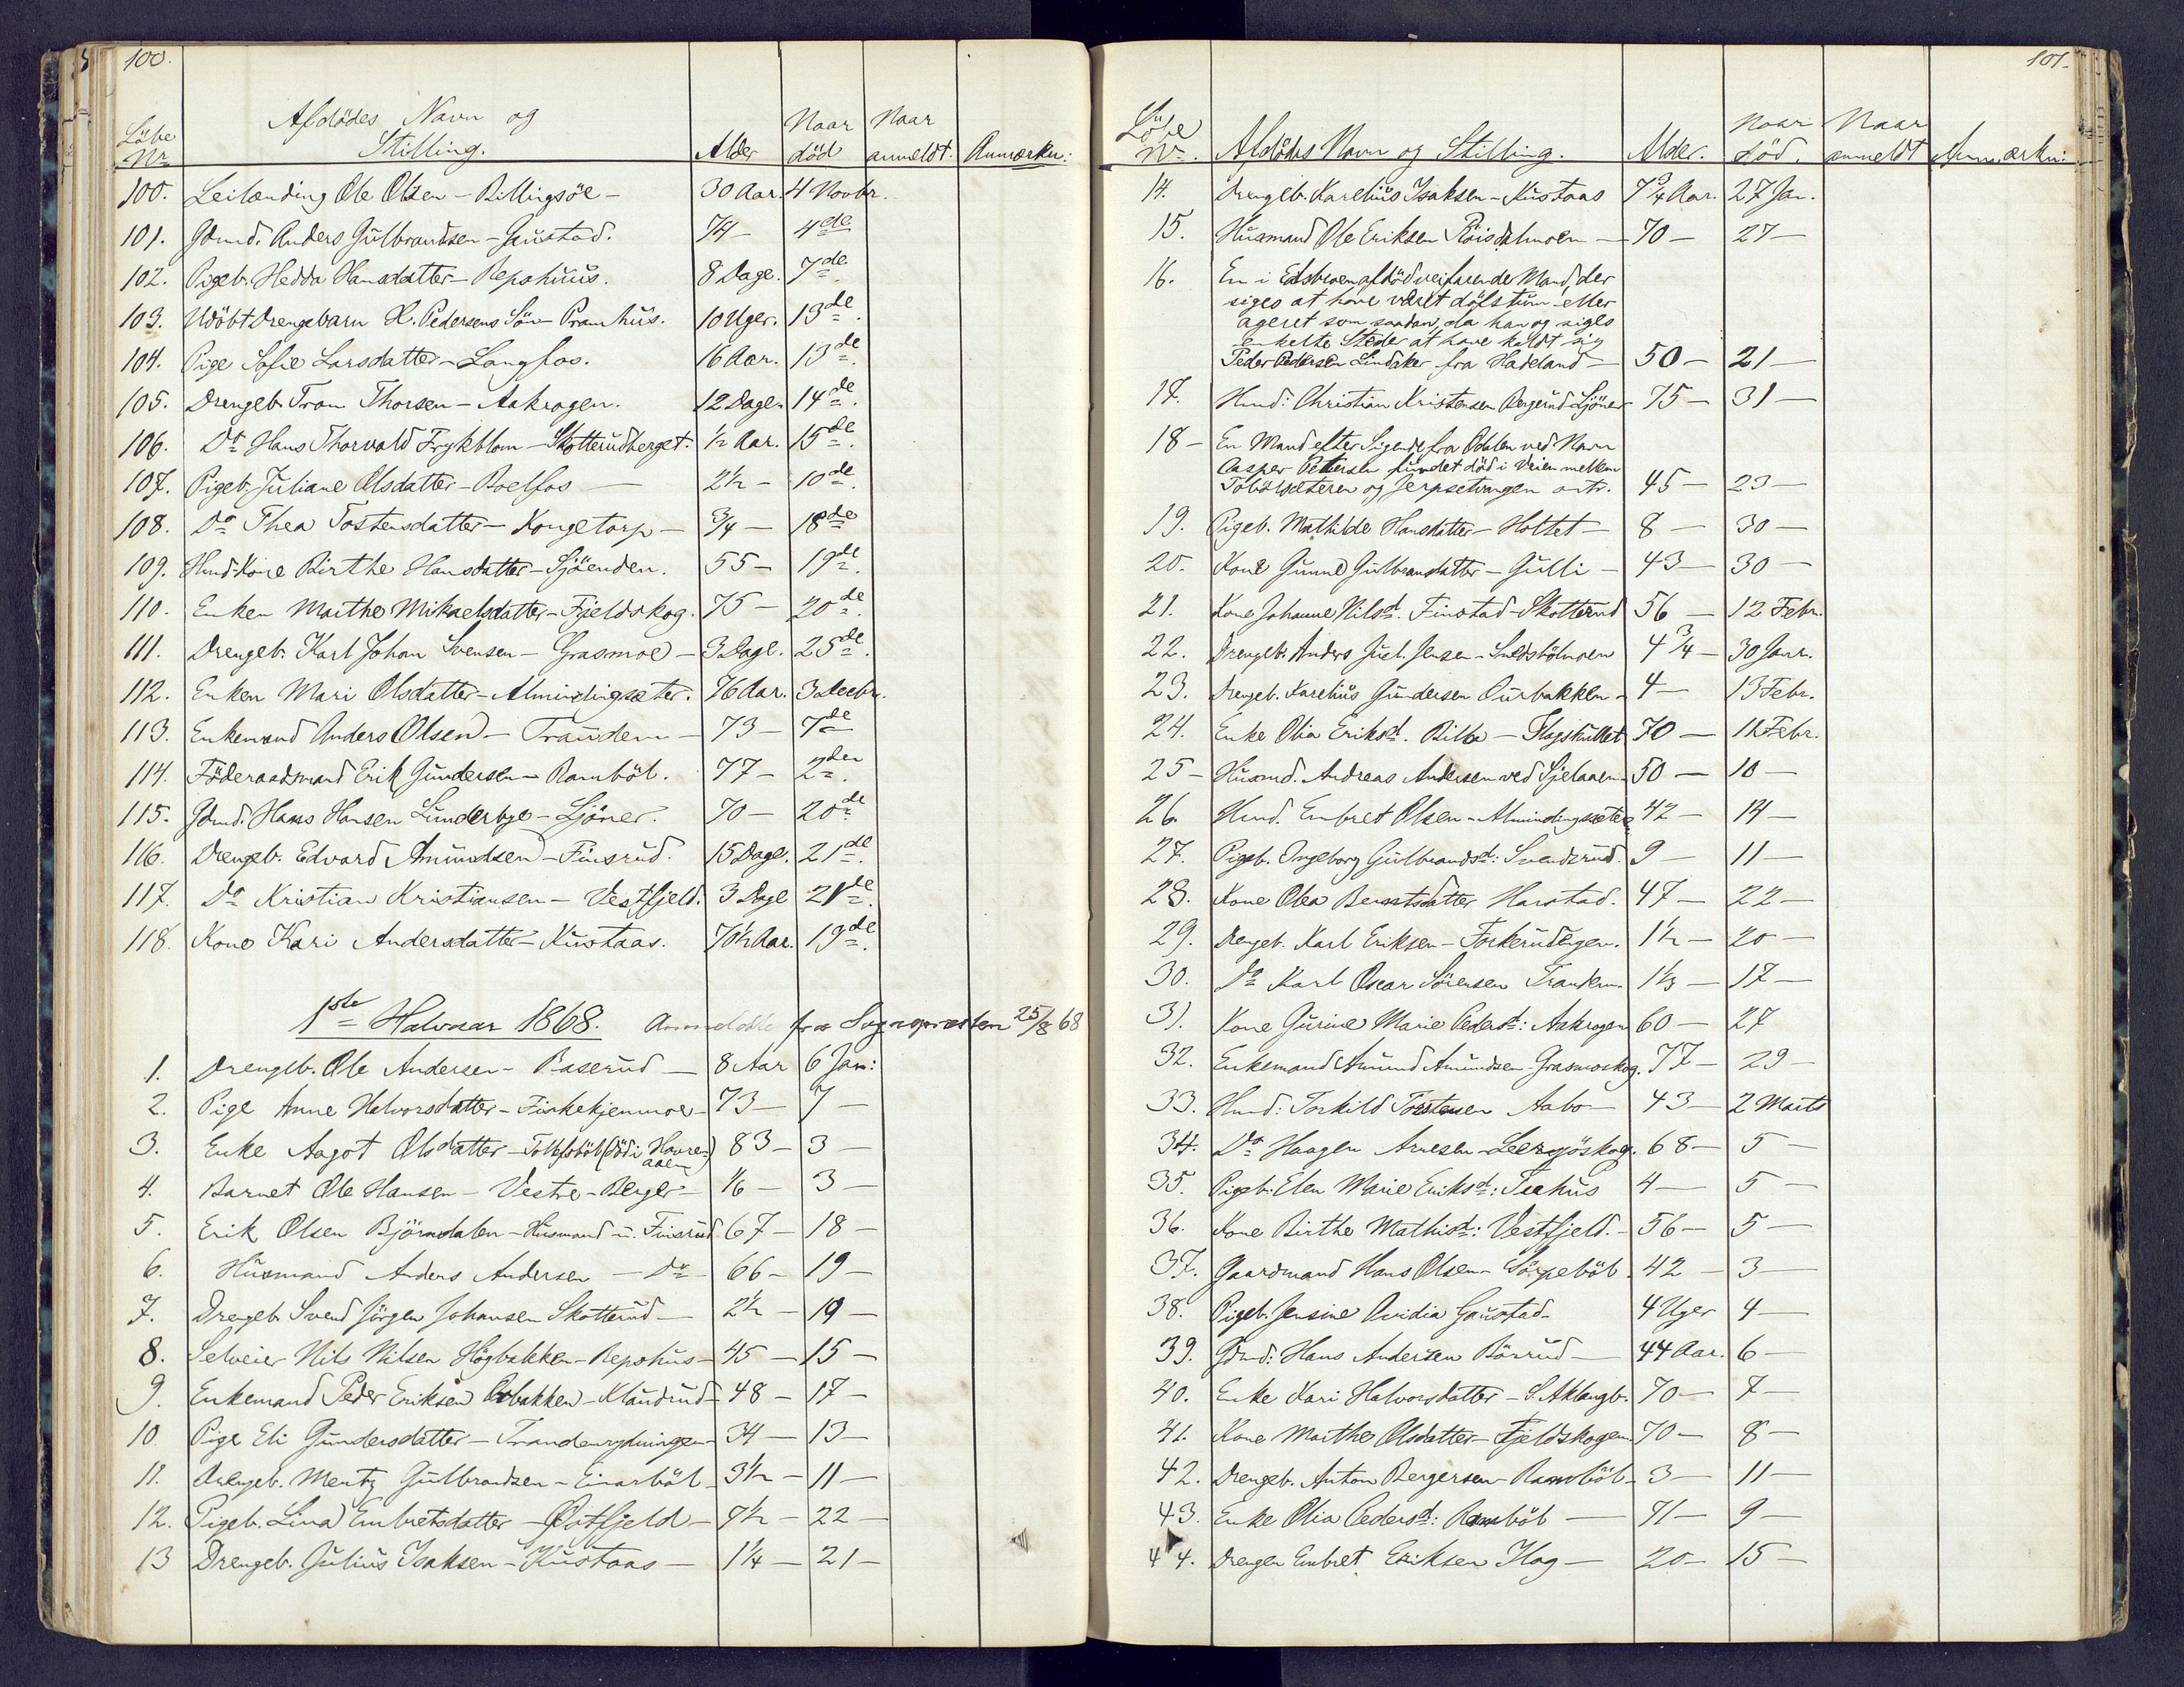 100.
Löbe Nr. Afdödes Navn og Stilling. Alder Naar död Naar anmeldt. Anmærkn:
100. Leilænding Ole Olsen - Billingsöe - 30 Aar. 4 Novbr.
101. Gdmd. Anders Gulbrandsen - Gaustad. 74 - 4de
102. Pigeb. Hedda Hansdatter - Repshuus. 8 Dage. 7de
103. Udöbt Drengebarn H. Pedersens Sön - Pramhus. 10 Uger. 13de.
104. Pige Sofie Larsdatter - Langfos. 16 Aar. 13de.
105. Drengeb. Tron Thorsen - Aakrogen. 12 Dage. 14de.
106. Do Hans Thorvald Frykblom - Skotterudberget. ½ Aar. 15de.
107. Pigeb. Juliane Olsdatter - Boelfos - 2½ - 10de.
108. Do Thea Tostensdatter - Kongetorp - ¾ - 18de
109. Hmd-Kone Birthe Hansdatter - Sjöenden. 55 - 19de.
110. Enken Marthe Mikaelsdatter - Fjeldskog. 75 - 20de.
111. Drengeb. Karl Johan Svensen - Grasmoe - 3 Dage. 25de.
112. Enken Mari Olsdatter - Almindingsæter. 76 Aar. 3 Decbr.
113. Enkemand Anders Olsen - Traudem - 73 - 7de
114. Föderaadsmand Erik Gundersen - Ramböl. 77 - 2den.
115. Gdmd. Hans Hansen Lunderbye - Ljöner. 70 - 20de
116. Drengeb. Edvard Amundsen - Finsrud. 15 Dage. 21de.
117. Do Kristian Kristiansen - Vestfjeld. 3 Dage 21de.
118. Kone Kari Andersdatter - Kustaas. 70½ Aar. 19de.
1ste Halvaar 1868. Anmeldte fra Sognepresten 25/8 68
1. Drengeb. Ole Andersen - Baserud - 8 Aar 6 Jan:
2. Pige Anne Halvorsdatter - Finkekjenmoe - 73 - 7 -
3. Enke Aagot Olsdatter - Tollefsböl (död i Haureaaen) 83 - 3 -
4. Barnet Ole Hansen - Vestre - Berger - 1/6 - 3 -
5. Erik Olsen Björnsdalen - Husmand u. Finsrud. 67 - 18 -
6. Husmand Anders Andersen - Do - 66 - 19 -
7. Drengeb. Svend Jörgen Johansen Skotterud - 2½ - 19 -
8. Selveier Nils Nilsen Högbakken - Repshus - 45 - 15 -
9. Enkemand Peder Eriksen Orbakken - Klaudrud - 48 - 17 -
10 Pige Eli Gundersdatter - Trandemrydningen - 34 - 13 -
11. Drengeb. Mentz Gulbrandsen - Einarböl - 3½ - 11 -
12. Pigeb. Lina Embretsdatter - Östfjeld - 7½ - 22 -
13 Drengeb. Julius Isaksen - Kustaas - 1¼ - 21 -
101.
Löbe Nr. Afdödes Navn og Stilling. Alder. Naar död. Naar anmeldt Anmærkn:
14. Drengeb. Karelius Isaksen - Kustaas 7¾ Aar. 27 Jan.
15. Husmand Ole Eriksen Röisdalmoen - 70 - 27 -
16. En i Edsbroen afdöd veifarende Mand, der
siges at have været döfstum eller
ageret som saadan, da han og siges
enkelte Steder at have kaldt sig
Peder Pedersen Lindaker fra Hadeland - 50 - 21 -
17. Hmd: Christian Kristensen Bergerud Ljöner 75 - 31 -
18 - En Mand efter Sigende fra Odalen ved Navn
Casper Pettersen fundet död i Veien mellem
Tobölsæteren og Jerpsetvangen ontr. 45 - 23 -
19. Pigeb. Mathilde Hansdatter - Holtet - 8 - 30 -
20. Kone Gunne Gulbrandsdatter - Gulli - 43 - 30 -
21. Kone Johanne Nilsd. Finstad - Skotterud 56 - 12 Febr.
22. Drengeb. Anders Just. Jensen - Snedsbölmoen 4¾ - 30 Janr.
23. Drengeb. Karelius Gundersen Ourbakken - 4 - 13 Febr.
24. Enke Olia Eriksd. Billa - Flagskullet 70 - 12 Febr.
25 - Husmd. Andreas Andersen ved Sjelaaen 50 - 10 -
26. Hmd. Embret Olsen - Almindingsæter 42 - 14 -
27. Pigeb. Ingeborg Gulbrandsd: Svendsrud. 9 - 11 -
28. Kone Olea Berntsdatter Harstad. 47 - 22 -
29. Drengeb. Karl Eriksen - Forkerudengen. 1½ - 20 -
30. Do Karl Oscar Sörensen Trandem 1⅓ - 17 -
31. Kone Gurine Marie Pedersd: Aakrogen 60 - 27
32. Enkemand Amund Amundsen - Grasmoskog. 77 - 29 -
33. Hmd: Torkild Torstensen Aabo - 43 - 2 Marts
34. Do Haagen Arnesen - Leersjöskog. 68 - 5 -
35. Pigeb: Elen Marie Eriksd: Teehus 4 - 5 -
36. Kone Birthe Mathisd: Vestfjeld. - 56 - 5 -
37. Gaardmand Hans Olsen - Sörpeböl. 42 - 3 -
38. Pigeb. Jensine Ovidia Gaustad - 4 Uger 4 -
39. Gdmd: Hans Andersen Börrud - 44 Aar. 6 -
40. Enke Kari Halvorsdatter - S. Aklangb. 70 - 7 -
41. Kone Marthe Olsdatter - Fjeldskogen 70 - 8 -
42. Drengeb. Anton Bergersen - Ramböl - 3 - 11 -
43. Enke Olia Pedersd: Ramböl - 71 - 9 -
44. Drengen Embret Eriksen Hag - 20 - 15 -